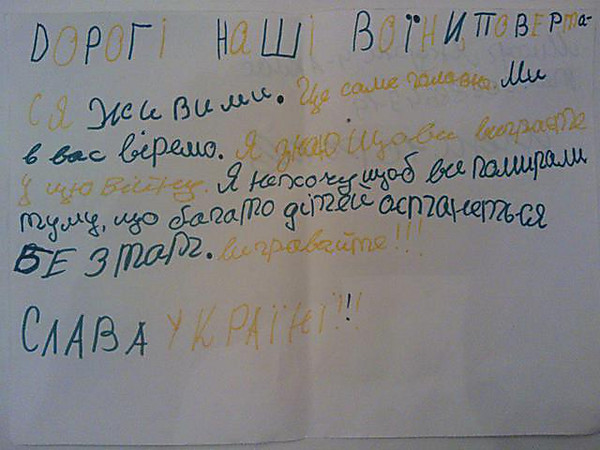 ДОРОГІ НАШІ ВОЇНИ, ПОВЕРТА-
СЯ ЖИВИМИ. Це саме головне. Ми
в вас віремо. Я знаю що ви виграєте
у цю війну. Я не хочу щоб ви памирали
тому, що багато дітей астанеться
БЕЗ тат. виgравайте!!!
СЛАВА УКРАЇНІ!!!